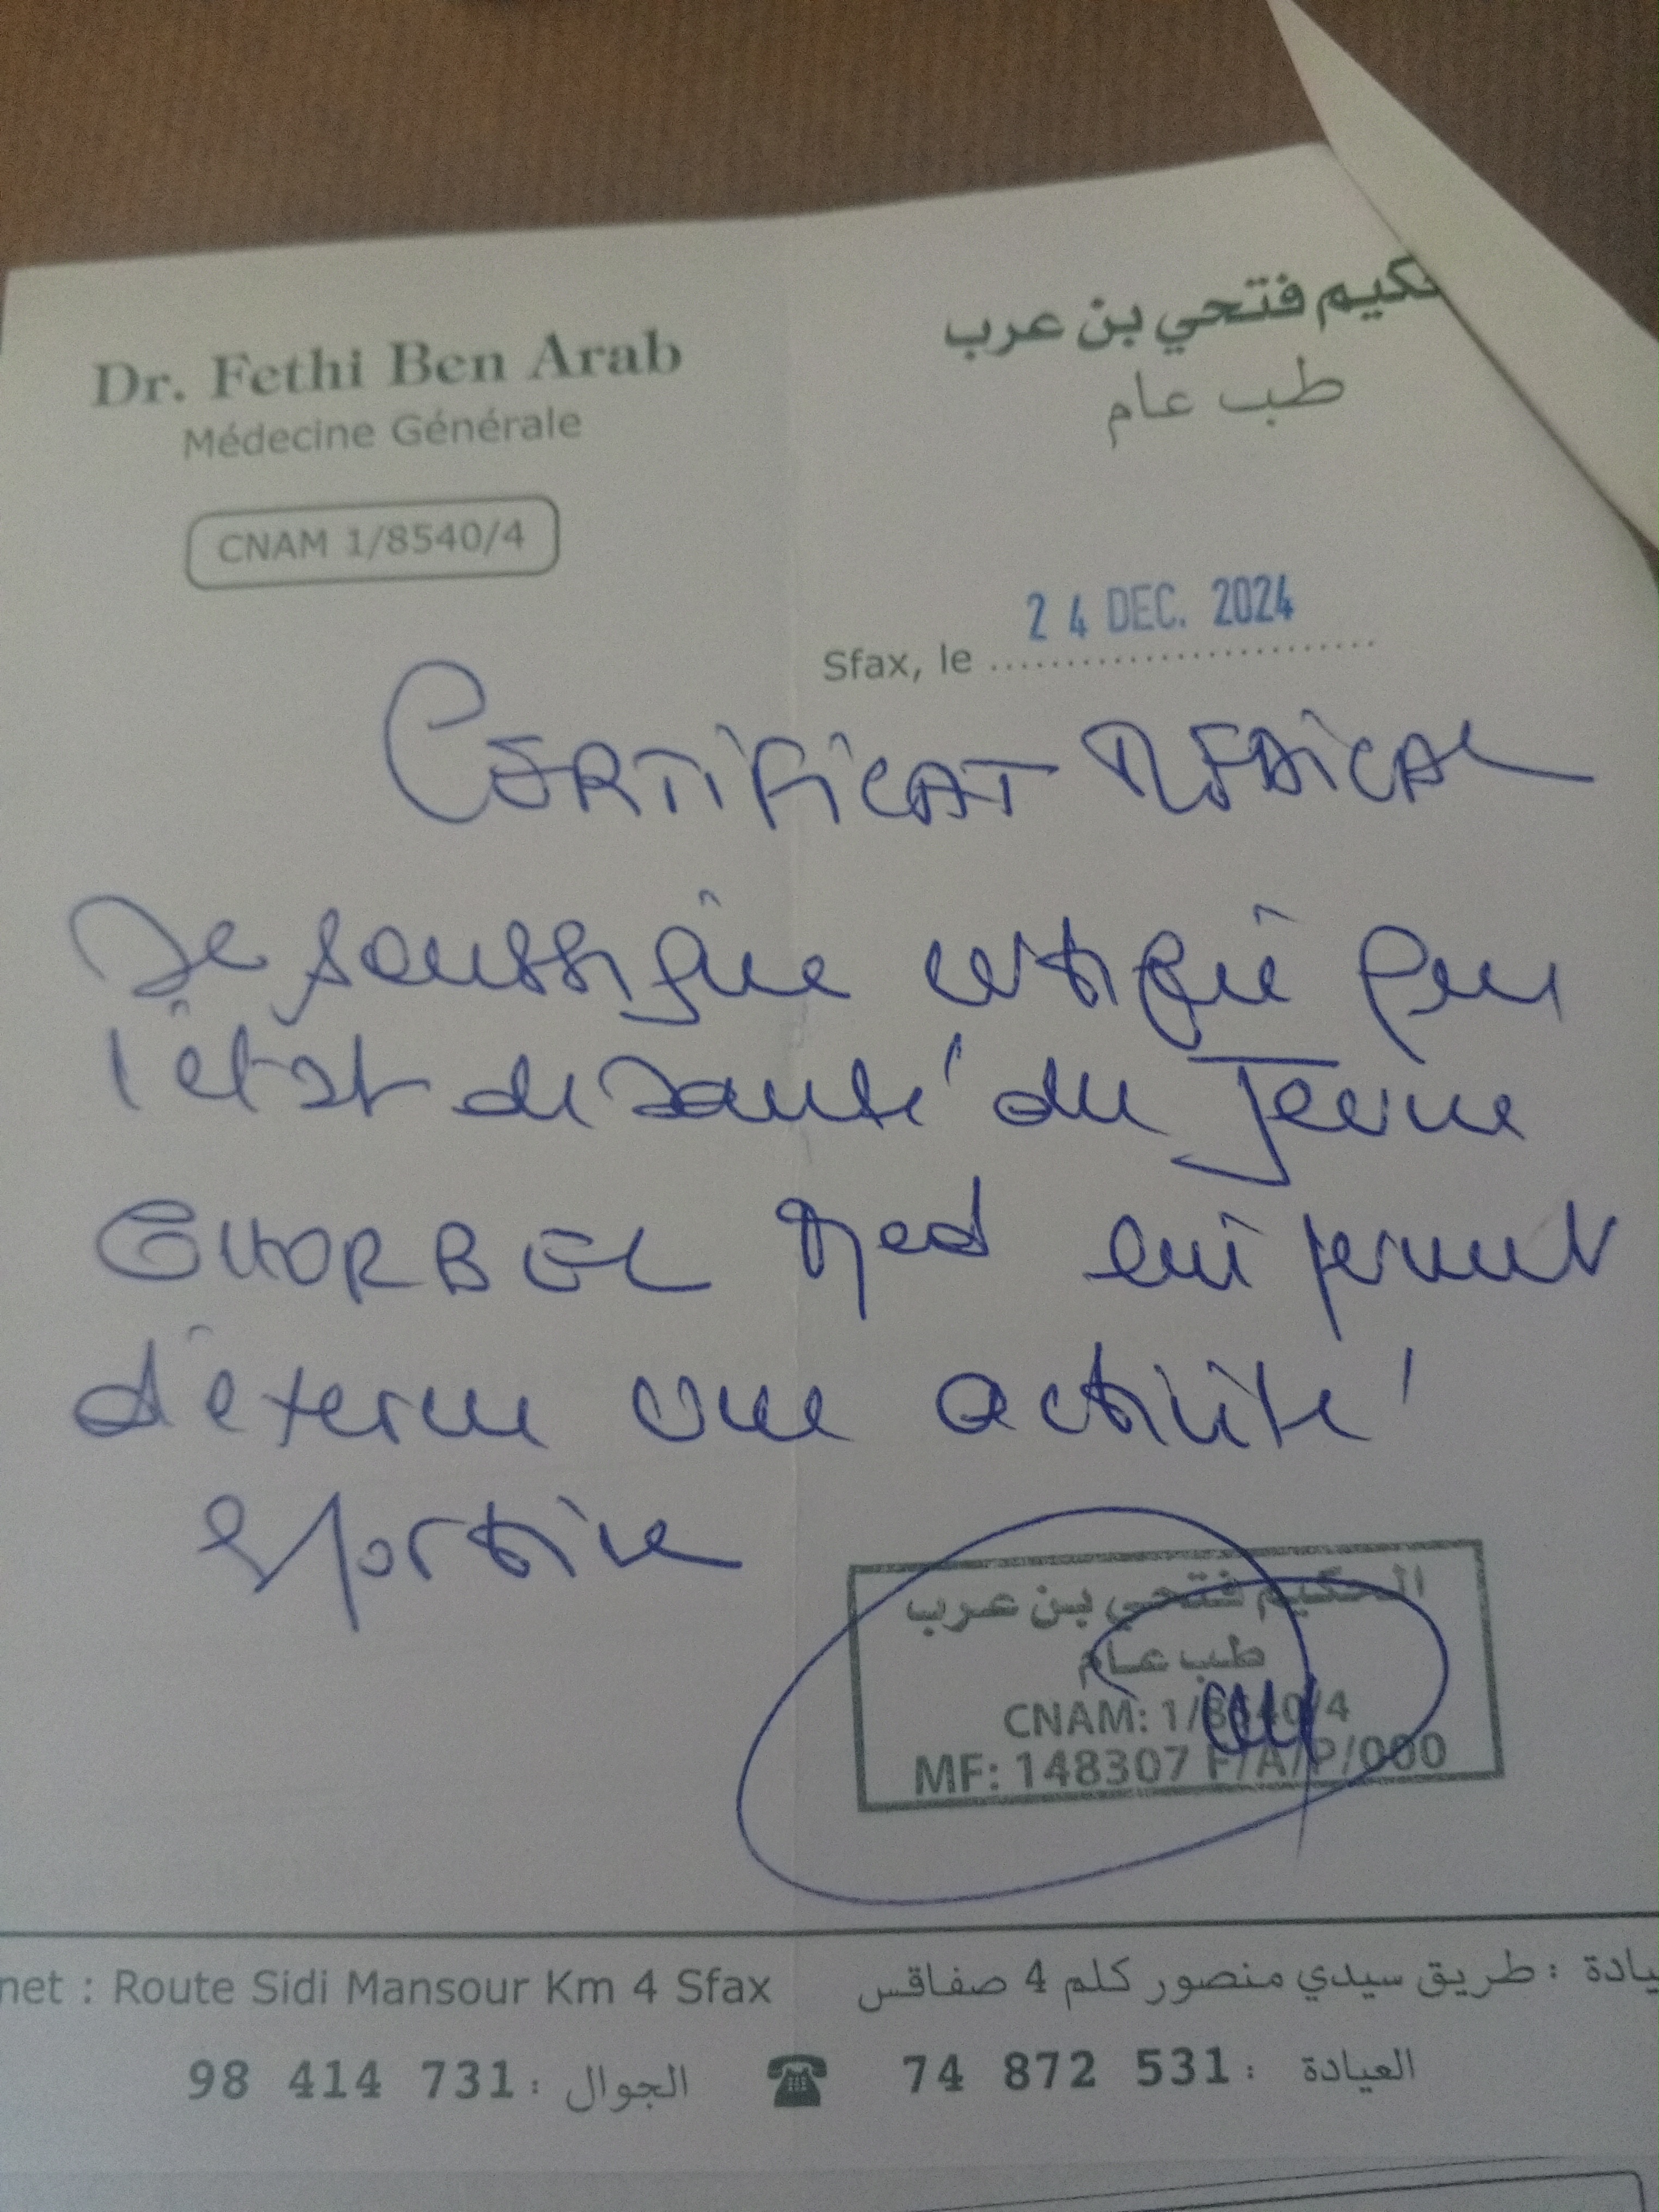 Dr. Fethi Ben Arab
Médecine Générale
CNAM 1/8540/4
حكيم فتحي بن عرب
طب عام
Sfax, le 24 DEC. 2024
CERTIFICAT MEDICAL
Je soussigné certifie que
l'état de santé du Jeune
GHORBEL Med lui permet
d'exercer une activité
sportive
الحكيم فتحي بن عرب
طب عام
CNAM: 1/8540/4
MF: 148307 F/A/P/000
net : Route Sidi Mansour Km 4 Sfax
يادة : طريق سيدي منصور كلم 4 صفاقس
98 414 731 : الجوال
74 872 531 : العيادة